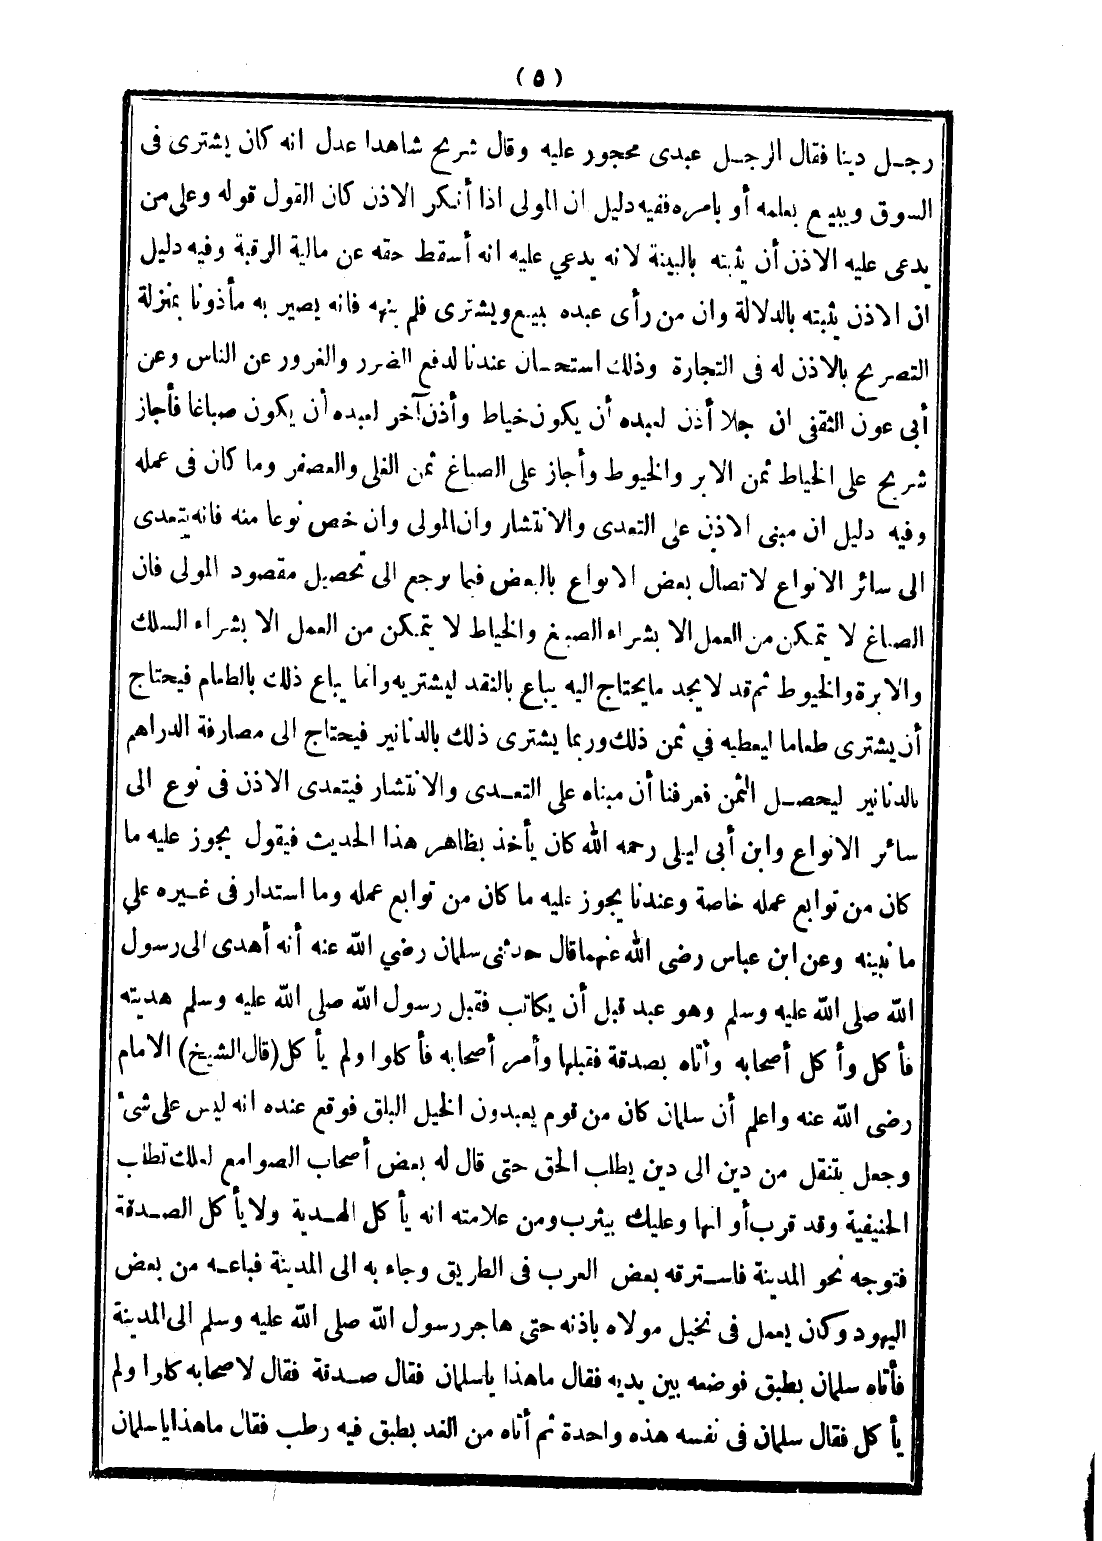 (٥)
رجـل دينا فقال الرجـل عبدى محجور عليه وقال شريح شاهدا عدل انه كان يشترى فى
السوق ويبيـع بعلمه أو بامره ففيه دليل ان المولى اذا أنكر الاذن كان القول قوله وعلى من
يدعى عليه الاذن أن يثبته بالبينة لانه يدعي عليه انه أسقط حقه عن مالية الرقبة وفيه دليل
ان الاذن يثبته بالدلالة وان من رأى عبده يبيع ويشترى فلم ينهه فانه يصير به مأذونا بمنزلة
التصريح بالاذن له فى التجارة وذلك استحسان عندنا لدفع الضرر والغرور عن الناس وعن
أبى عون الثقفى ان جلا أذن لعبده أن يكون خياط وأذن آخر لعبده أن يكون صباغا فأجاز
شريح على الخياط ثمن الابر والخيوط وأجاز على الصباغ ثمن القلى والعصفر وما كان فى عمله
وفيه دليل ان مبنى الاذن على التعدى والانتشار وان المولى وان خص نوعا منه فانه يتعدى
الى سائر الانواع لاتصال بعض الانواع بالبعض فيما يرجع الى تحصيل مقصود المولى فان
الصباغ لا يتمكن من العمل الا بشراء الصبغ والخياط لا يتمكن من العمل الا بشراء السلك
والابرة والخيوط ثم قد لا يجد ما يحتاج اليه يباع بالنقد ليشتريه وانما يباع ذلك بالطعام فيحتاج
أن يشترى طعاما ليعطيه في ثمن ذلك وربما يشترى ذلك بالدنانير فيحتاج الى مصارفة الدراهم
بالدنانير ليحصـل الثمن فعرفنا أن مبناه على التعـدى والانتشار فيتعدى الاذن فى نوع الى
سائر الانواع وابن أبى ليلى رحمه الله كان يأخذ بظاهر هذا الحديث فيقول يجوز عليه ما
كان من توابع عمله خاصة وعندنا يجوز عليه ما كان من توابع عمله وما استدار فى غـيره علي
ما نبينه وعن ابن عباس رضى الله عنهما قال حدثنى سلمان رضي الله عنه أنه أهدى الى رسول
الله صلى الله عليه وسلم وهو عبد قبل أن يكاتب فقبل رسول الله صلى الله عليه وسلم هديته
فأكل وأكل أصحابه وأتاه بصدقة فقبلها وأمر أصحابه فأكلوا ولم يأكل (قال الشيخ) الامام
رضى الله عنه واعلم أن سلمان كان من قوم يعبدون الخيل البلق فوقع عنده انه ليس على شئ
وجعل يتنقل من دين الى دين يطلب الحق حتى قال له بعض أصحاب الصوامع لعلك تطلب
الحنيفية وقد قرب أوانها وعليك بيثرب ومن علامته انه يأكل الهـدية ولا يأكل الصـدقة
فتوجه نحو المدينة فاسـترقه بعض العرب فى الطريق وجاء به الى المدينة فباعـه من بعض
اليهود وكان يعمل فى نخيل مولاه باذنه حتى هاجر رسول الله صلى الله عليه وسلم الى المدينة
فأتاه سلمان بطبق فوضعه بين يديه فقال ماهذا ياسلمان فقال صـدقة فقال لاصحابه كلوا ولم
يأكل فقال سلمان فى نفسه هذه واحدة ثم أتاه من الغد بطبق فيه رطب فقال ماهذا ياسلمان